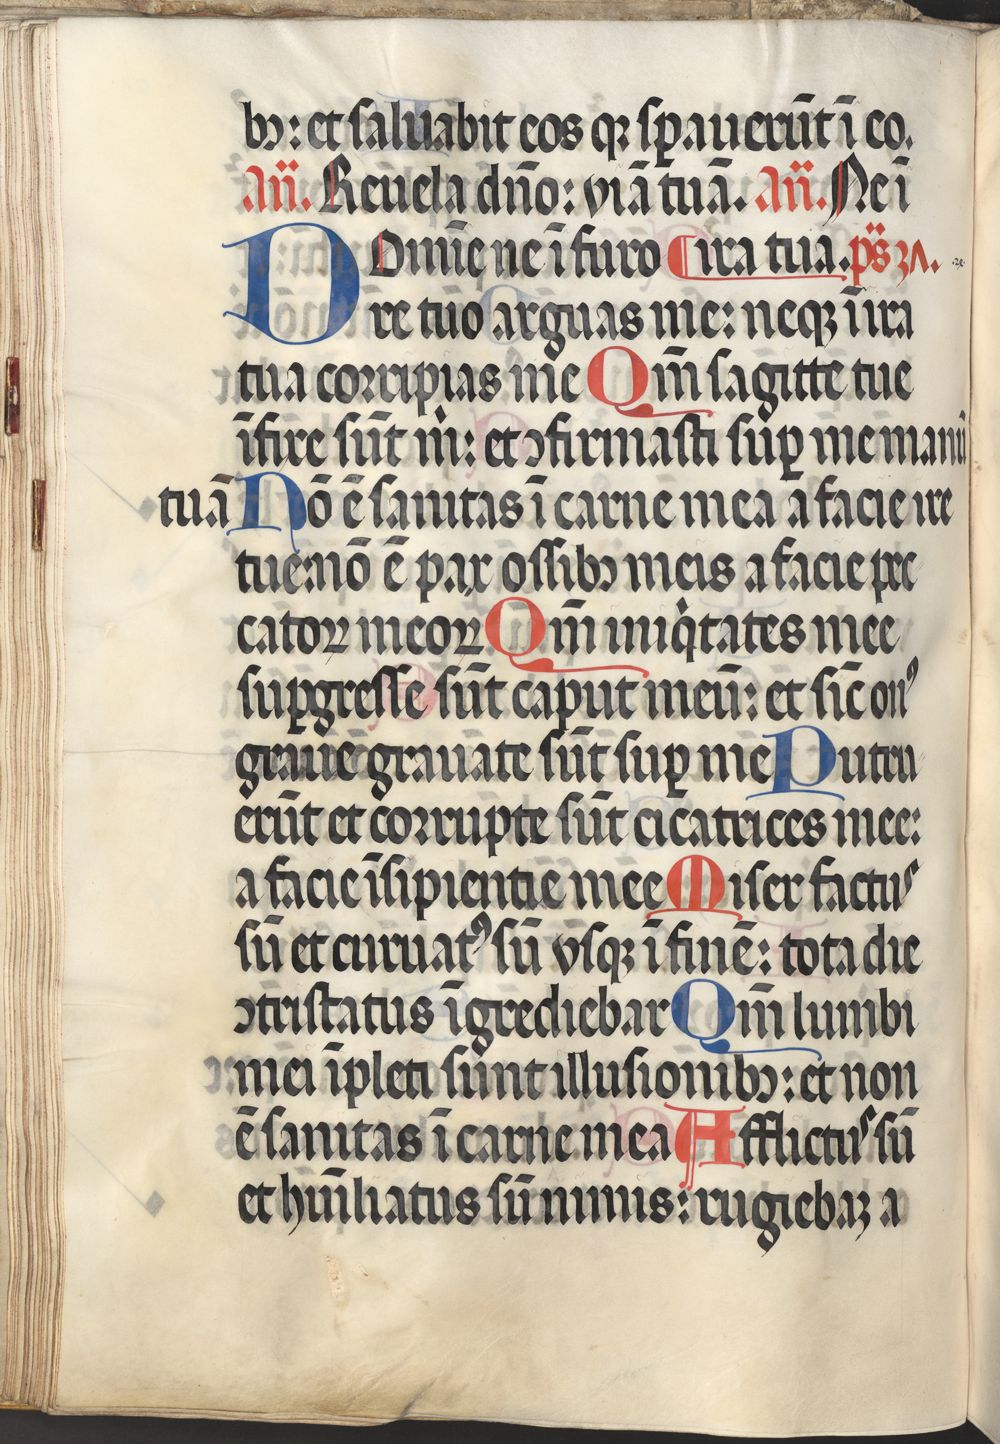 bꝯ: et saluabit eos qꝫ sꝑauerūt ī eo.
An̄. Reuela dn̄o: viā tuā. An̄. Ne ī
Domīe ne ī furo ira tua. ps̄ 37.
re tuo arguas me: neqꝫ ī ira
tua corripias me Qm̄ sagitte tue
īfixe sūt m̄: et ꝯfirmasti suꝑ me manū
tuā Nō ē sanitas ī carne mea a facie ire
tue: nō ē pax ossibꝯ meis a facie pec
catoꝝ meoꝝ Qm̄ iniq̇tates mee
suꝑgresse sūt caput meū: et sic̄ onꝰ
graue grauate sūt suꝑ me Putru
erūt et corrupte sūt cicatrices mee:
a facie īsipientie mee Miser factus
sū et curuatꝰ sū vsqꝫ ī finē: tota die
ꝯtristatus īgrediebar Qm̄ lumbi
mei īpleti sunt illusionibꝯ: et non
ē sanitas ī carne mea Afflictus sū
et hūiliatus sū nimis: rugiebaꝫ a